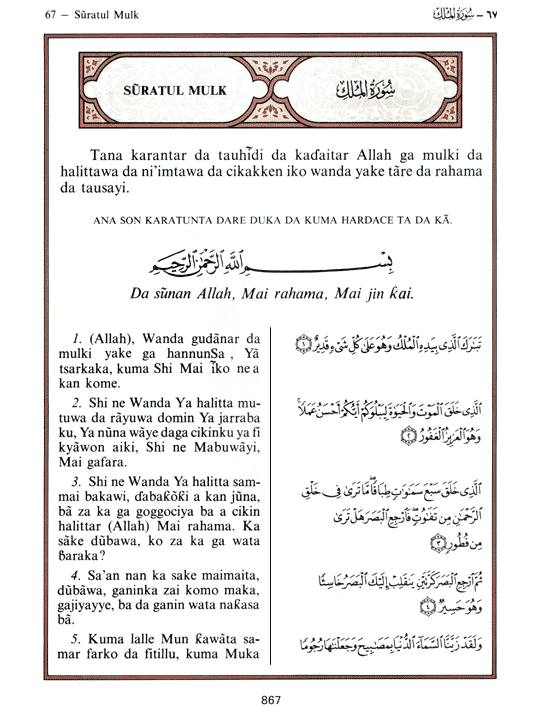 67 – Sũratul Mulk
٦٧ – سُورَةُ المُلْكِ
SŨRATUL MULK
سُورَةُ المُلْكِ
Tana karantar da tauhĩdi da kaɗaitar Allah ga mulki da
halittawa da ni'imtawa da cikakken iko wanda yake tãre da rahama
da tausayi.
ANA SON KARATUNTA DARE DUKA DA KUMA HARDACE TA DA KÃ.
بِسْمِ اللَّهِ الرَّحْمَٰنِ الرَّحِيمِ
Da sũnan Allah, Mai rahama, Mai jin ƙai.
1. (Allah), Wanda gudãnar da
mulki yake ga hannunSa , Yã
tsarkaka, kuma Shi Mai ĩko ne a
kan kome.
2. Shi ne Wanda Ya halitta mu-
tuwa da rãyuwa domin Ya jarraba
ku, Ya nũna wãye daga cikinku ya fi
kyãwon aiki, Shi ne Mabuwãyi,
Mai gafara.
3. Shi ne Wanda Ya halitta sam-
mai bakawi, ɗabaƙõƙi a kan jũna,
bã za ka ga goggociya ba a cikin
halittar (Allah) Mai rahama. Ka
sãke dũbawa, ko za ka ga wata
ɓaraka?
4. Sa'an nan ka sake maimaita,
dũbãwa, ganinka zai komo maka,
gajiyayye, ba da ganin wata naƙasa
bã.
5. Kuma lalle Mun ƙawãta sa-
mar farko da fitillu, kuma Muka
تَبَٰرَكَ ٱلَّذِى بِيَدِهِ ٱلْمُلْكُ وَهُوَ عَلَىٰ كُلِّ شَىْءٍ قَدِيرٌ ١
ٱلَّذِى خَلَقَ ٱلْمَوْتَ وَٱلْحَيَوٰةَ لِيَبْلُوَكُمْ أَيُّكُمْ أَحْسَنُ عَمَلًا
وَهُوَ ٱلْعَزِيزُ ٱلْغَفُورُ ٢
ٱلَّذِى خَلَقَ سَبْعَ سَمَٰوَٰتٍ طِبَاقًا مَّا تَرَىٰ فِى خَلْقِ
ٱلرَّحْمَٰنِ مِن تَفَٰوُتٍ فَٱرْجِعِ ٱلْبَصَرَ هَلْ تَرَىٰ
مِن فُطُورٍ ٣
ثُمَّ ٱرْجِعِ ٱلْبَصَرَ كَرَّتَيْنِ يَنقَلِبْ إِلَيْكَ ٱلْبَصَرُ خَاسِئًا
وَهُوَ حَسِيرٌ ٤
وَلَقَدْ زَيَّنَّا ٱلسَّمَآءَ ٱلدُّنْيَا بِمَصَٰبِيحَ وَجَعَلْنَٰهَا رُجُومًا
867